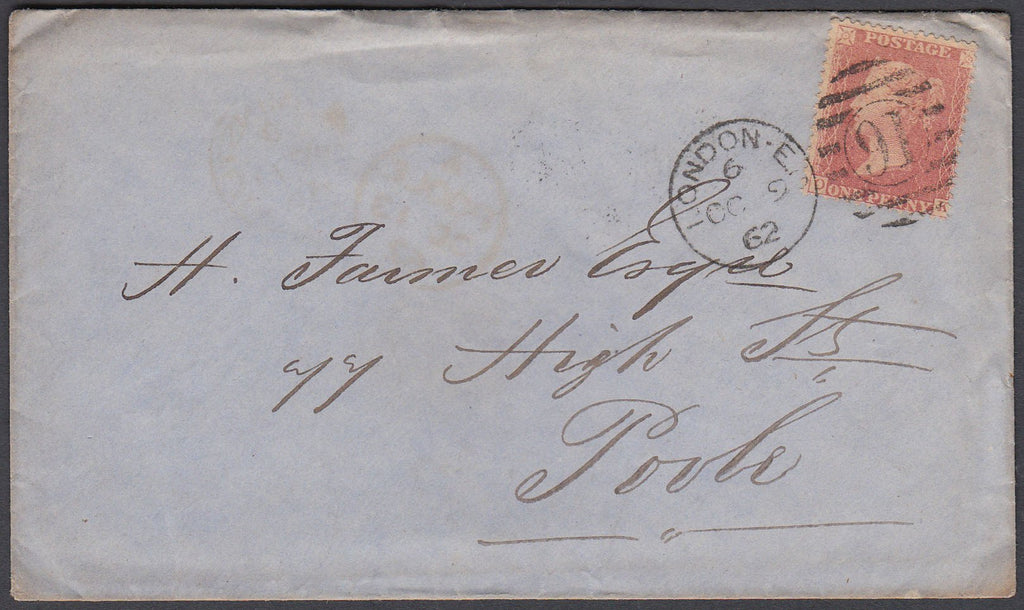 POSTAGE
91
ONE PENNY
LONDON-E.C
6
OC 9
62
H. Farmer Esqre
77 High St.
Poole